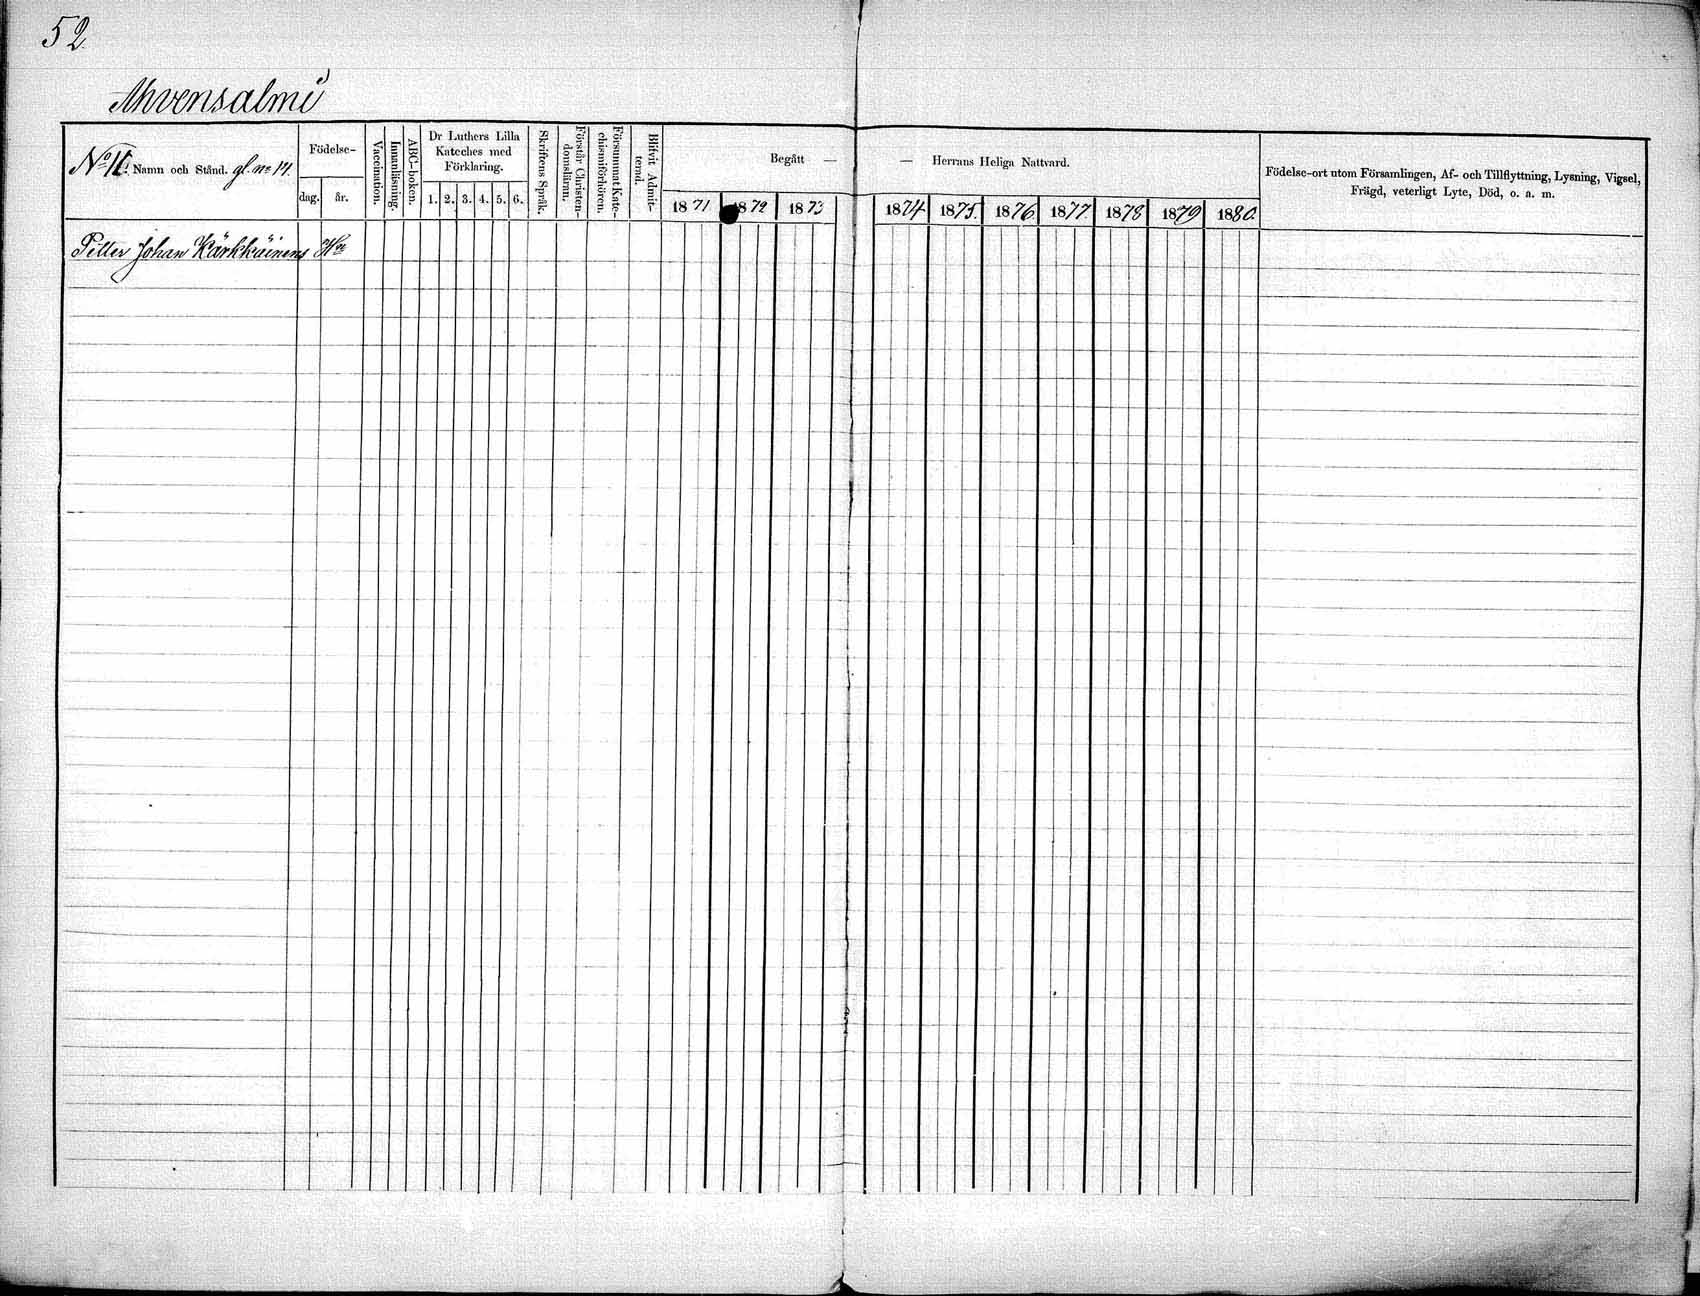 52.
Ahvensalmi
Namn och Stånd. gl. no 14.
Födelse-
dag.
år.
Vaccination.
Innanläsning.
ABC-boken.
Dr Luthers Lilla
Kateches med
Förklaring.
1. 2. 3. 4. 5. 6.
Skriftens Språk.
Förstår Christen-
domsläran.
Försummat Kate-
chismiförhören.
Blifvit Admit-
terad.
Begått —
— Herrans Heliga Nattvard.
1871 1872 1873 1874 1875. 1876 1877 1878 1879 1880.
Födelse-ort utom Församlingen, Af- och Tillflyttning, Lysning, Vigsel,
Frägd, veterligt Lyte, Död, o. a. m.
Petter Johan Kärkkäinens